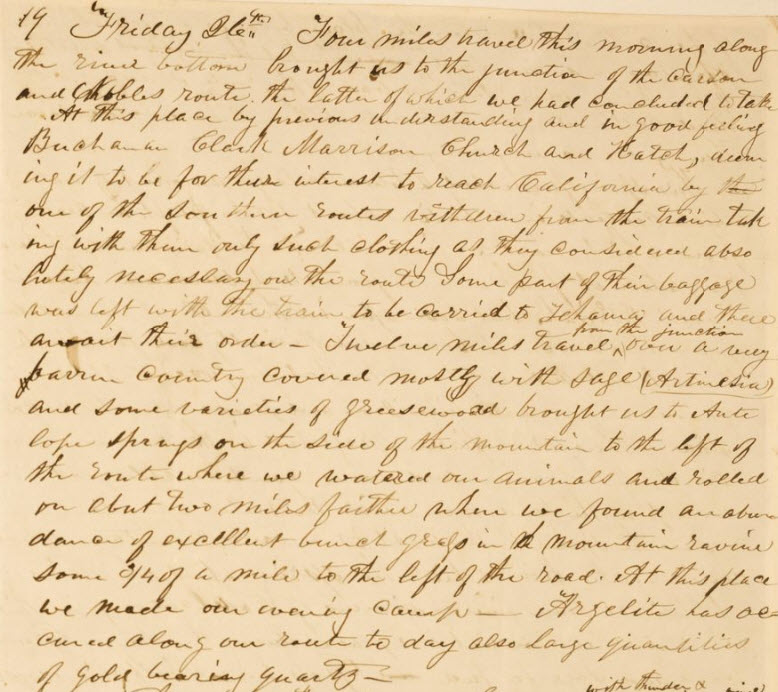 19 "Friday 26th" Four miles travel this morning along
the river bottom brought us to the junction of the Carson
and Nobles route, the latter of which we had concluded to take
At this place by previous understanding and in good feeling
Buchanan Clark Marrison Church and Hatch, deem
ing it to be for there interest to reach California by the
one of the southern routes withdrew from the train tak
ing with them only such clothing as they considered abso
lutely necessary on the route Some part of their baggage
was left with the train to be carried to Tehama and there
await their order – Twelve miles travel, from the junction over a very
barren country covered mostly with sage (Artmesia)
and some varieties of greesewood brought us to Ante
lope springs on the side of the mountain to the left of
the route where we watered our animals and rolled
on about two miles farther when we found an abun
dance of excellent bunch grass in the mountain ravine
some 3/4 of a mile to the left of the road. At this place
we made our evening camp — Argelite has oc=
cured along our route to day also large quantities
of gold bearing quartz –
with thunder &